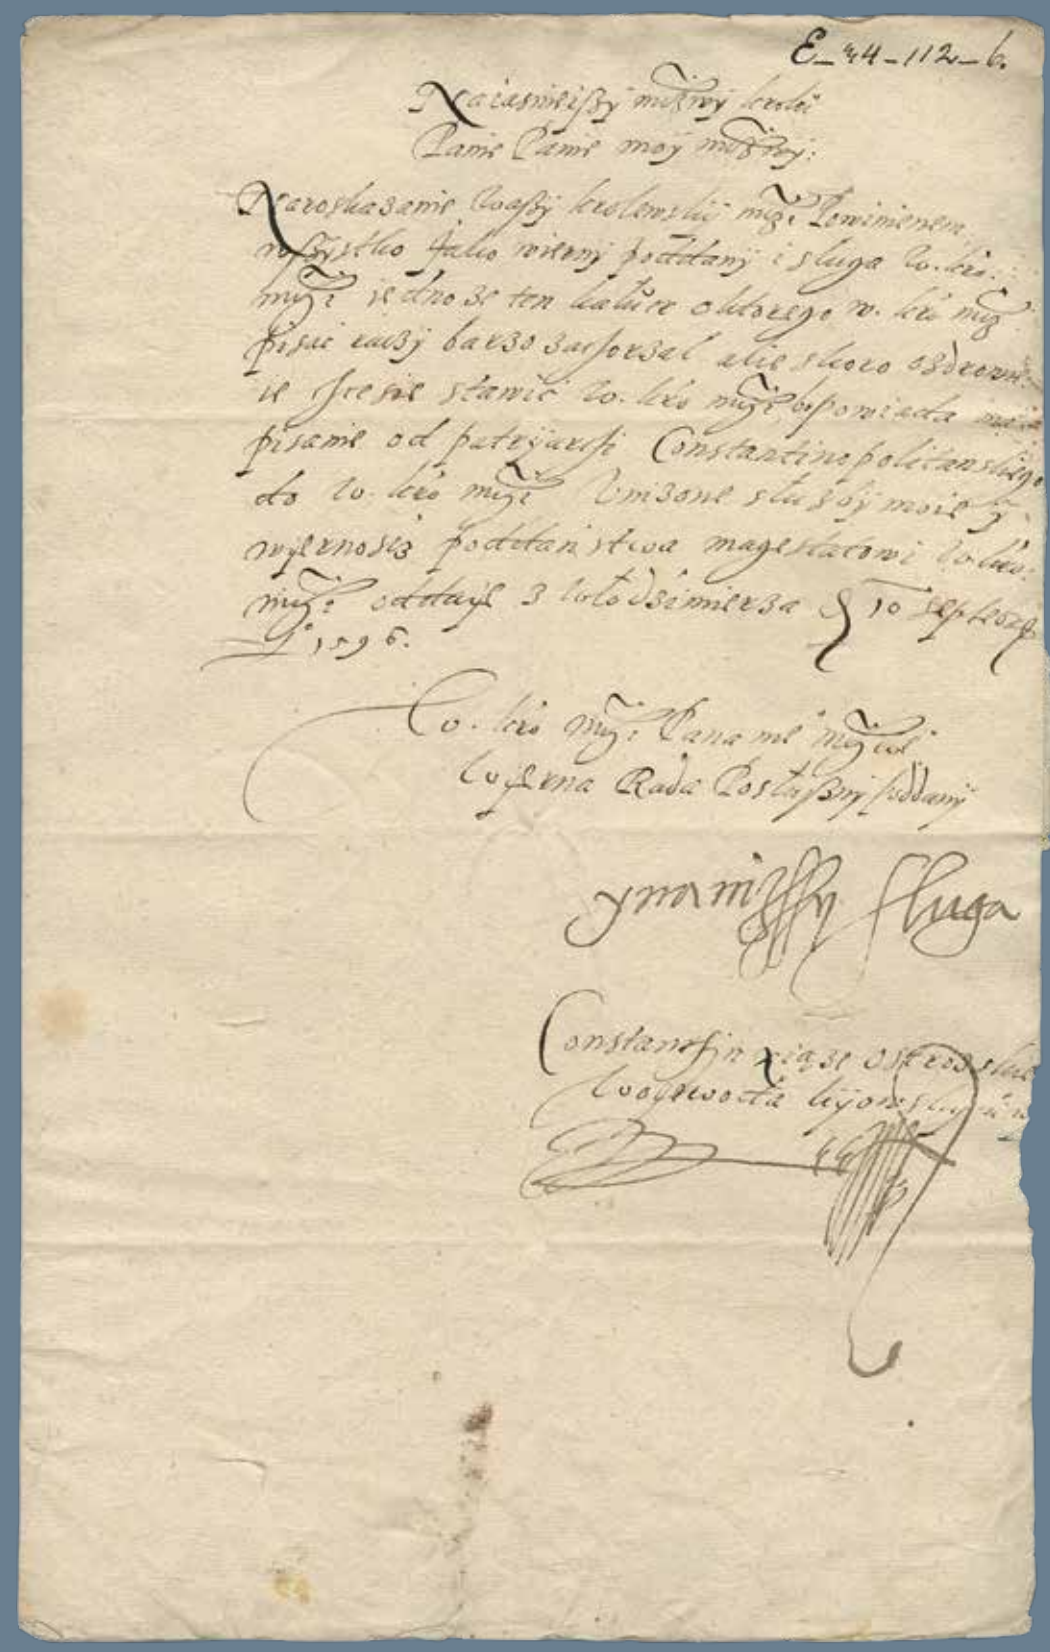 E_44_112_6.
Naiasnieißÿ miłſciwÿ krolü
Panie Panie moÿ miłſciwÿ:
Naroskazanie waßÿ krolewskiÿ mczi Powinienem
wßÿstko Jako wiernÿ poddanÿ i sługa w. kro.
mczi jedno ze ten kałuer oktorego w. kro mcz
pisac raczÿ barzo zachorzał alie skoro ozdrowi
ie chce sie stawic w. kro mczi opowiada
pisanie od patrÿarchi Constantinopolitanskiego
do w. kro mczi Unizone słuzbÿ moie ÿ
wÿernosez poddanstwa magestatowi w kro:
mczi oddaÿe z włodzimierza 10 septemb
1596.
w. kro mczi Pana me° mcziwe°
wÿerna Rada Posłußnÿ poddanÿ
ÿnanißßÿ sluga
Constantÿn xiąze ostrozskie
woÿewoda kÿowskÿ